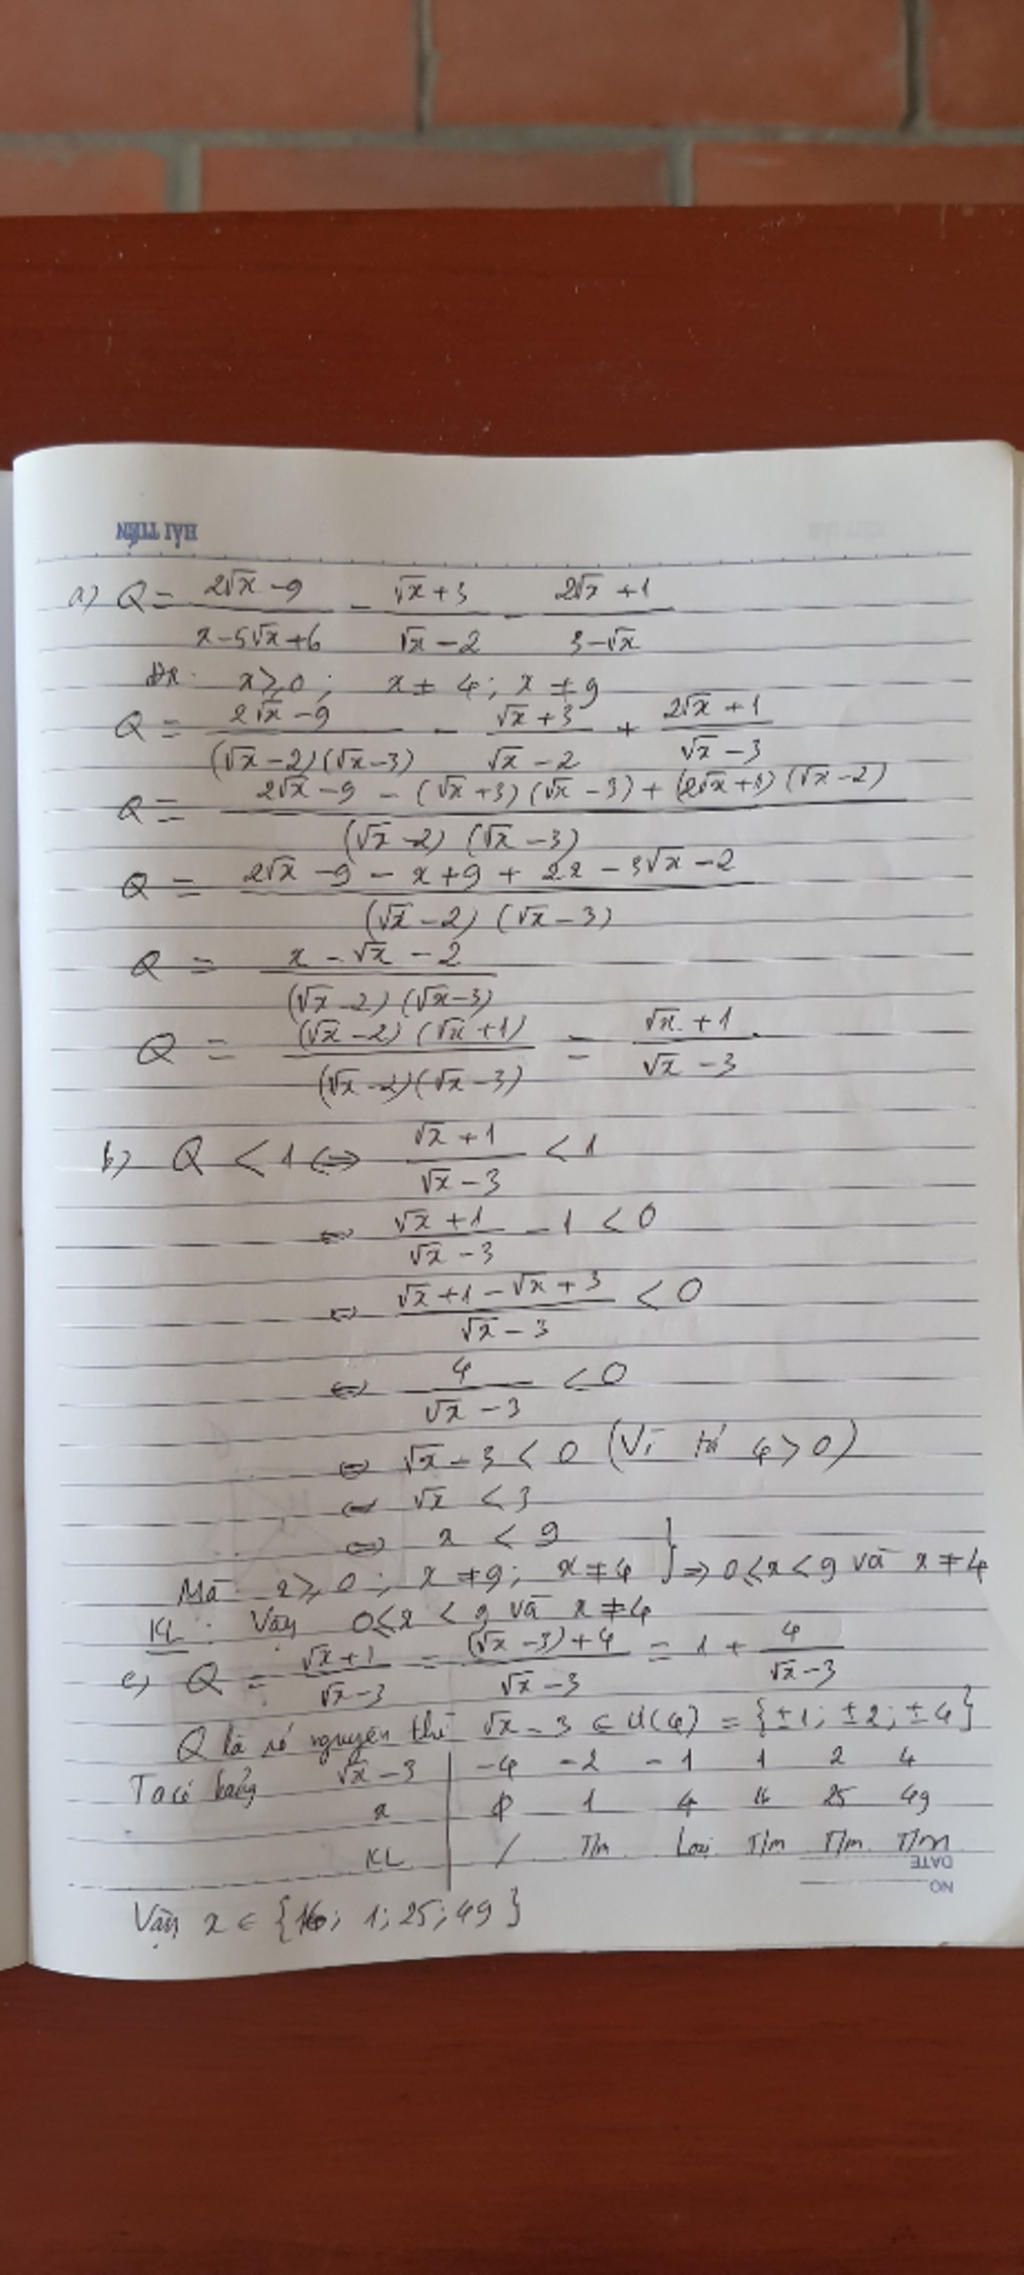 HẢI TIẾN
a) Q = (2√x - 9)/(x - 5√x + 6) - (√x + 3)/(√x - 2) - (2√x + 1)/(3 - √x)
ĐK: x ≥ 0 ; x ≠ 4 ; x ≠ 9
Q = (2√x - 9)/((√x - 2)(√x - 3)) - (√x + 3)/(√x - 2) + (2√x + 1)/(√x - 3)
Q = (2√x - 9 - (√x + 3)(√x - 3) + (2√x + 1)(√x - 2))/((√x - 2)(√x - 3))
Q = (2√x - 9 - x + 9 + 2x - 3√x - 2)/((√x - 2)(√x - 3))
Q = (x - √x - 2)/((√x - 2)(√x - 3))
Q = ((√x - 2)(√x + 1))/((√x - 2)(√x - 3)) = (√x + 1)/(√x - 3)
b) Q < 1 ⇔ (√x + 1)/(√x - 3) < 1
⇔ (√x + 1)/(√x - 3) - 1 < 0
⇔ (√x + 1 - √x + 3)/(√x - 3) < 0
⇔ 4/(√x - 3) < 0
⇔ √x - 3 < 0 (Vì tử 4 > 0)
⇔ √x < 3
⇔ x < 9
Mà x ≥ 0 ; x ≠ 9 ; x ≠ 4 } ⇒ 0 ≤ x < 9 và x ≠ 4
KL : Vậy 0 ≤ x < 9 và x ≠ 4
c) Q = (√x + 1)/(√x - 3) = ((√x - 3) + 4)/(√x - 3) = 1 + 4/(√x - 3)
Q là số nguyên thì √x - 3 ∈ Ư(4) = {±1 ; ±2 ; ±4}
Ta có bảng √x - 3 | -4 -2 -1 1 2 4
x | ϕ 1 4 16 25 49
KL | / T/m Loại T/m T/m T/m
DATE
NO
Vậy x ∈ {16 ; 1 ; 25 ; 49}